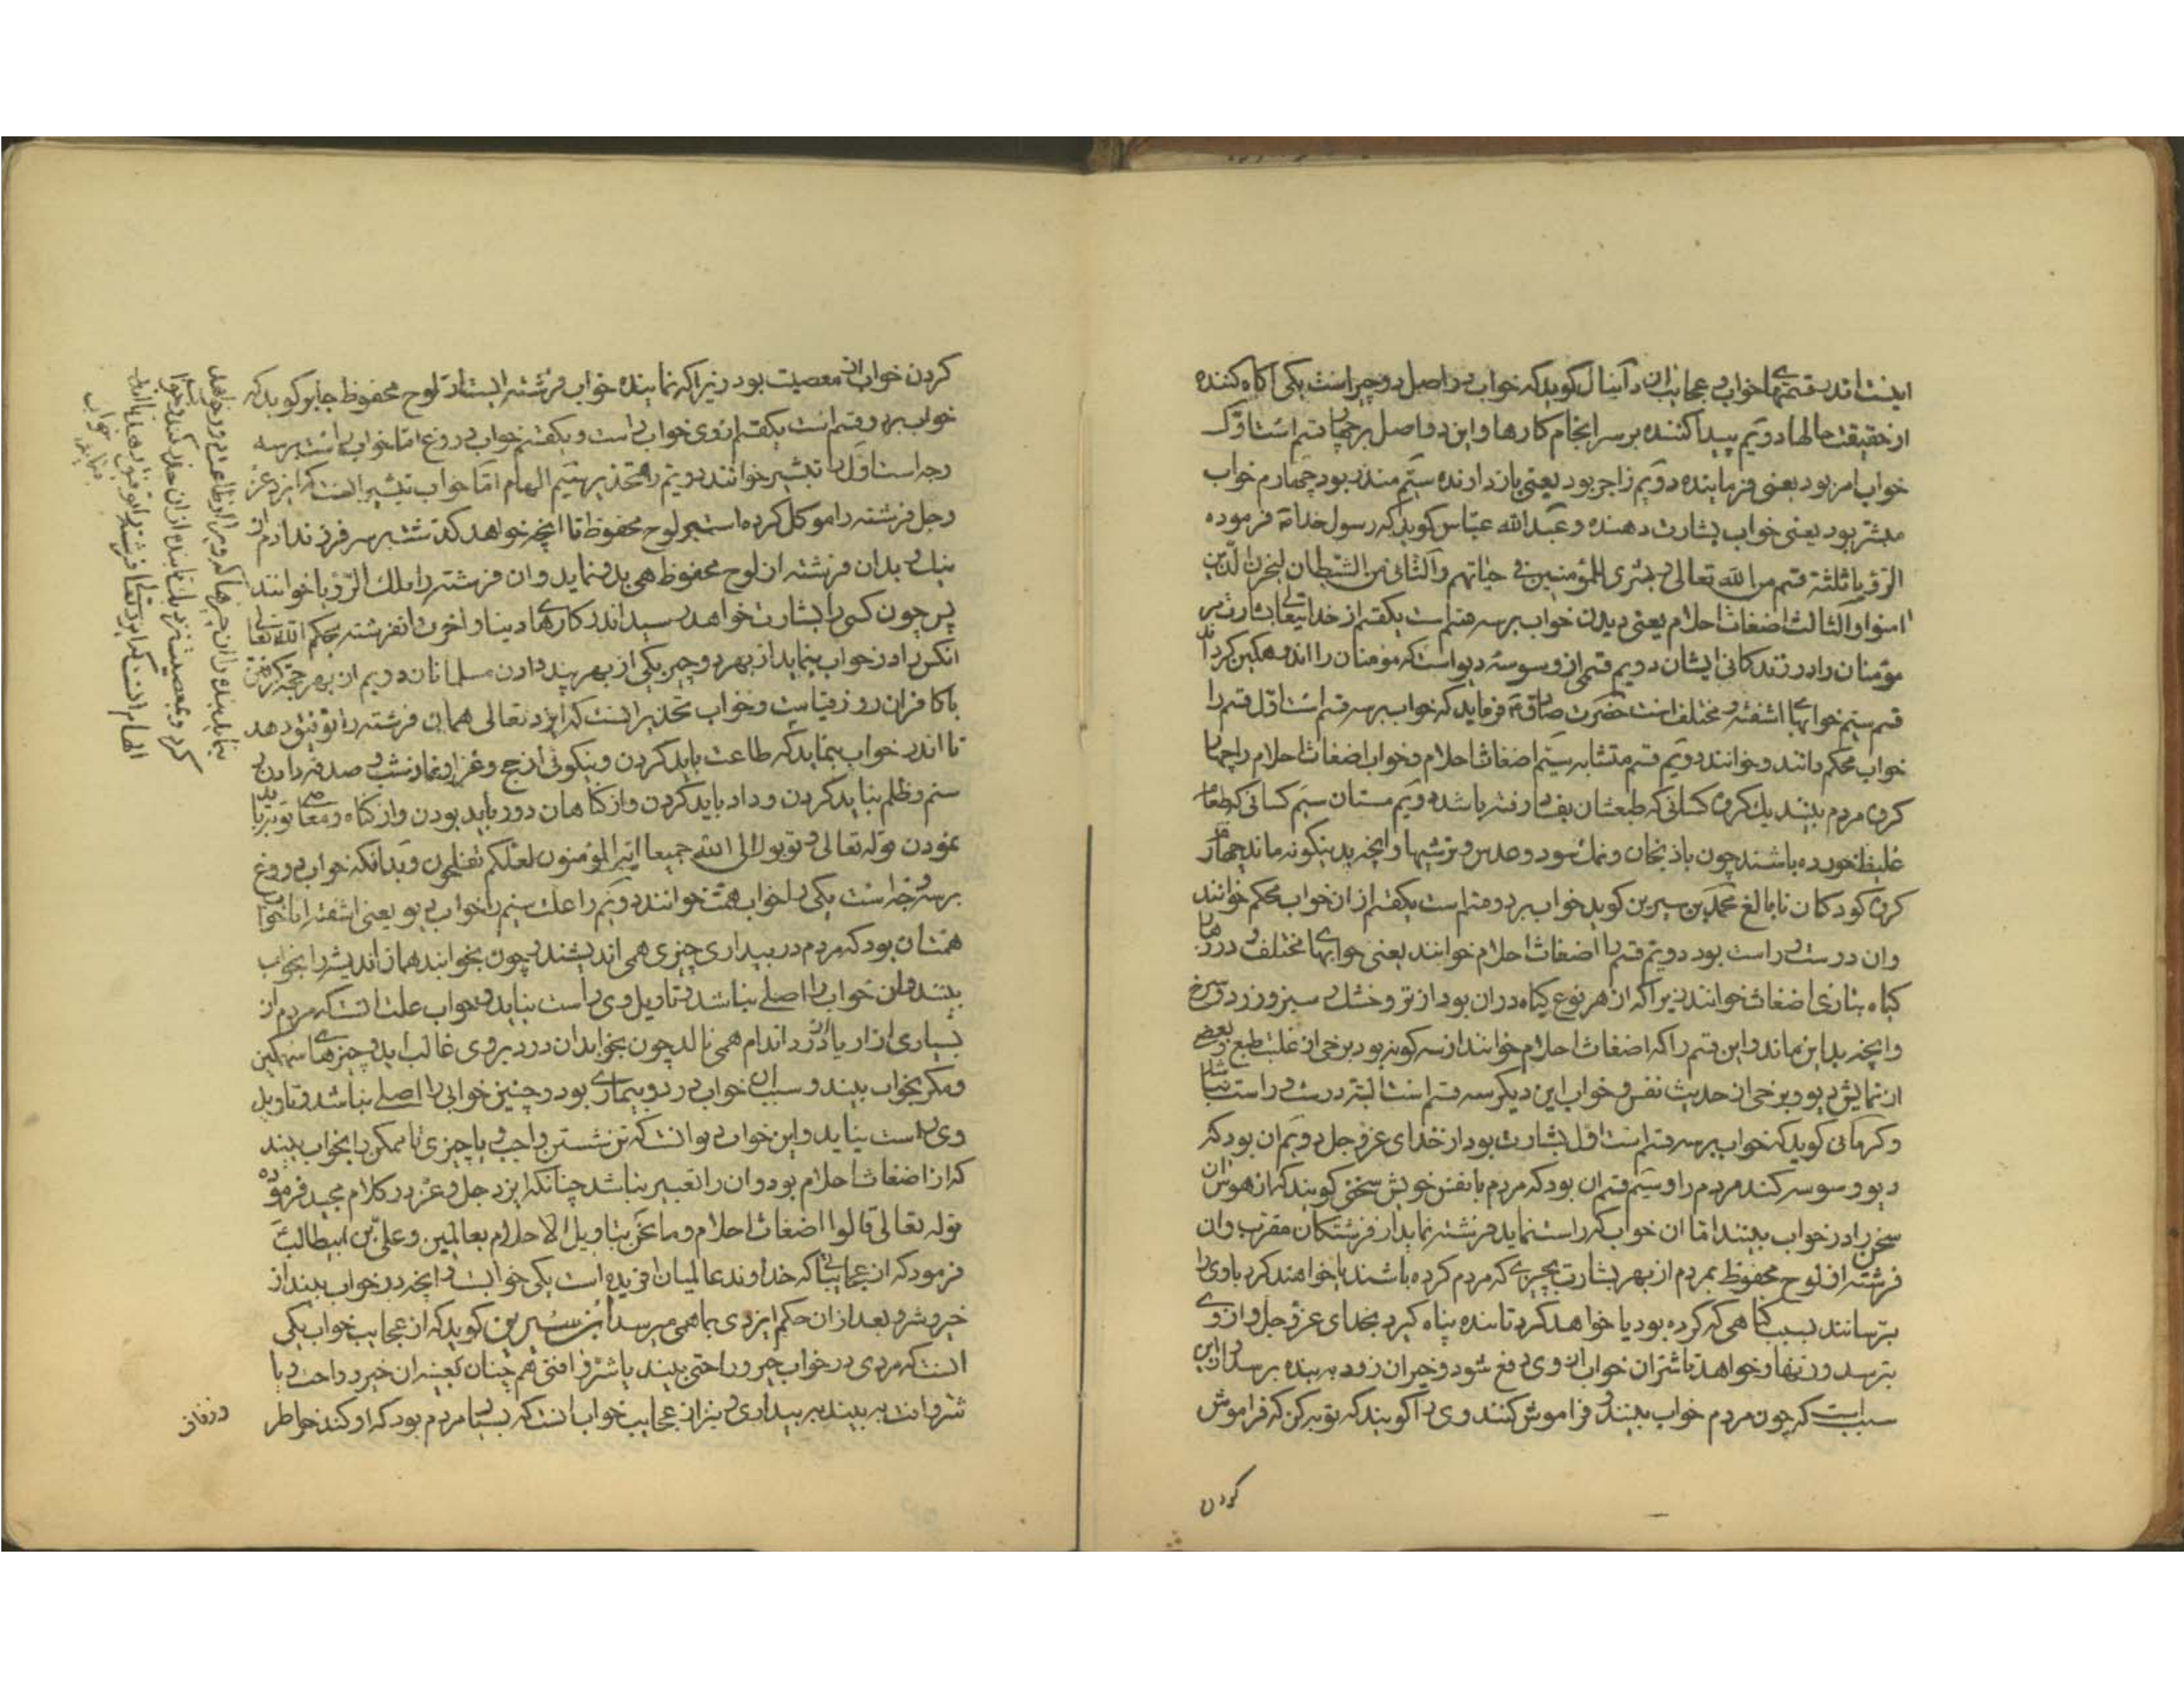 اینست اندر قسمتهای خواب و عجایب آن دانیال کوید که خواب در اصل دو چیز است یکی اکاه کننده
از حقیقت حالها دویم پیدا کننده بر سر انجام کارها و این دو اصل بر چهار قسم است اوّل
خواب امر بود یعنی فرماینده دویم زاجر بود یعنی بازدارنده سیّم منذر بود چهارم خواب
مبشر بود یعنی خواب بشارت دهنده و عبد الله عبّاس کوید که رسول خدا فرموده
الرؤیا ثلثة قسم من الله تعالی و بشری للمؤمنین فی حیاتهم والثانی من الشیطان لیحزن الذین
امنوا والثالث اضغاث احلام یعنی دیدن خواب بر سه قسم است یکقسم از خدایتعالی بشارت مر
مؤمنان را در زندکانی ایشان دویم قسمی از وسوسه دیو است که مؤمنان را اندوهکین کرداند
قسم سیم خوابهای اشفته و مختلف است حضرت صادق فرماید که خواب بر سه قسم است اوّل قسم را
خواب محکم دانند و خوانند دویم قسم متشابه سیّم اضغاث احلام و خواب اضغاث احلام را چهار
کروه مردم بینند یک کروه کسانی که طبعشان بفساد رفته باشد دویم مستان سیم کسانی که طعام
غلیظ خورده باشند چون باذنجان و نمک سود و عدس و ترشیها و انچه بدینکونه ماند چهارم
کروه کودکان نابالغ محمد بن سیرین کوید خواب بر دو قسم است یکقسم از ان خواب محکم خوانند
وان درست و راست بود دویم قسم را اضغاث احلام خوانند یعنی خوابهای مختلف و
کیاه بتازی اضغاث خوانند زیرا که از هر نوع کیاه دران بود از تر و خشک و سبز و زرد و سرخ
وانچه بداین ماند و این قسم را که اضغاث احلام خوانند از سه کونه بود برخی از غلبت طبع و بعضی
از نمایش دیو و برخی از حدیث نفس و خواب این دیکر سه قسم است البته درست و راست نباشد
و کرمانی کوید که خواب بر سه قسم است اوّل بشارت بود از خدای عز و جل دویم ان بود که
دیو وسوسه کند مردم را و سیّم قسم ان بود که مردم با نفس خویش سخن کویند که از هوس ان
سخن را در خواب بینند اما ان خواب که راست نماید فرشته نماید از فرشتکان مقرب وان
فرشته از لوح محفوظ بمردم از بهر بشارت بچیزی که مردم کرده باشند یا خواهند کرد یا وی را
بترسانند بسبب کناهی که کرده بود یا خواهد کرد تا بنده پناه کیرد بخدای عز و جل و از وی
بترسد و زنهار خواهد تا شر ان خواب از وی دفع شود و خیر ان زود به بنده برسد و از این
سبب است که چون مردم خواب بینند و فراموش کنند وی را کویند که توبه کن که فراموش
کردن
کردن خواب از معصیت بود زیرا که نماینده خواب فرشته ایستاد لوح محفوظ جابر کوید که
خواب بر دو قسم است یکقسم از وی خواب راست و یکقسم خواب دروغ اما خواب راست بر سه
وجه است اوّل را تبشیر خوانند دویم را تحذیر سیّم الهام امّا خواب تبشیر انست که ایزد عز
وجل فرشته را موکل کرده است بر لوح محفوظ تا انچه خواهد کذشت بر سر فرزند ادم از
نیک و بد ان فرشته از لوح محفوظ همی بدو نماید و ان فرشته را ملک الرّؤیا خوانند
پس چون کسی را بشارت خواهد رسید اندر کارهای دنیا و اخرت انفرشته بحکم الله تعالی
انکس را در خواب بنماید از بهر دو چیز یکی از بهر پند دادن مسلمانان دویم از بهر حجت کرفتن
با کافران روز قیامت و خواب تحذیر انست که ایزد تعالی همان فرشته را توفیق دهد
تا اندر خواب بنماید که طاعت باید کردن و نیکوئی از حج و غزا و نماز شب و صدقه دادن و
ستم و ظلم نباید کردن و داد باید کردن و از کناهان دور باید بودن و از کناه و معاصی توبه باید
نمودن قوله تعالی و توبوا الی الله جمیعا ایها المؤمنون لعلکم تفلحون و بدانکه خواب دروغ
بر سه وجه است یکی را خواب همّت خوانند دویم را علت سیم را خواب دیو یعنی اشفته اما خواب
همّت ان بود که مردم در بیداری چیزی همی اندیشند چون بخوابند هماز اندیشه را بخواب
بینند و ان خواب را اصلی نباشد و تاویل وی راست نیاید و خواب علت انست که مردم از
بسیاری ازار یا از درد اندام همی نالد چون بخوابد ان درد بر وی غالب اید و چیزهای سهمکین
و مکر بخواب بیند و سبب ان خواب درد و بیماری بود و چنین خوابی را اصلی نباشد و تاویل
وی راست نیاید و این خواب دیو انست که تن شستن واجب و یا چیزی ناممکن را بخواب بیند
که از اضغاث احلام بود و ان را تعبیر نباشد چنانکه ایزد جل و عز در کلام مجید فرموده
قوله تعالی قالوا اضغاث احلام وما نحن بتاویل الاحلام بعالمین و علی بن ابیطالب
فرمود که از عجایبها که خداوند عالمیان افریده است یکی خواب است و انچه در خواب بیند از
خیر و شر و بعد از ان حکم ایزدی بما همی میرسد ابن سیرین کوید که از عجایب خواب یکی
انست که مردی در خواب خیر و راحتی بیند یا شر و افتی هم چنان بعینه ان خیر و راحت و یا
شر و افت به بیند به بیداری و نیز از عجایب خواب انست که بسیار مردم بود که او کند خاطر
و زفان
الهام انست که ایزد تعا فرشته را توفیق دهد تا اندر خواب